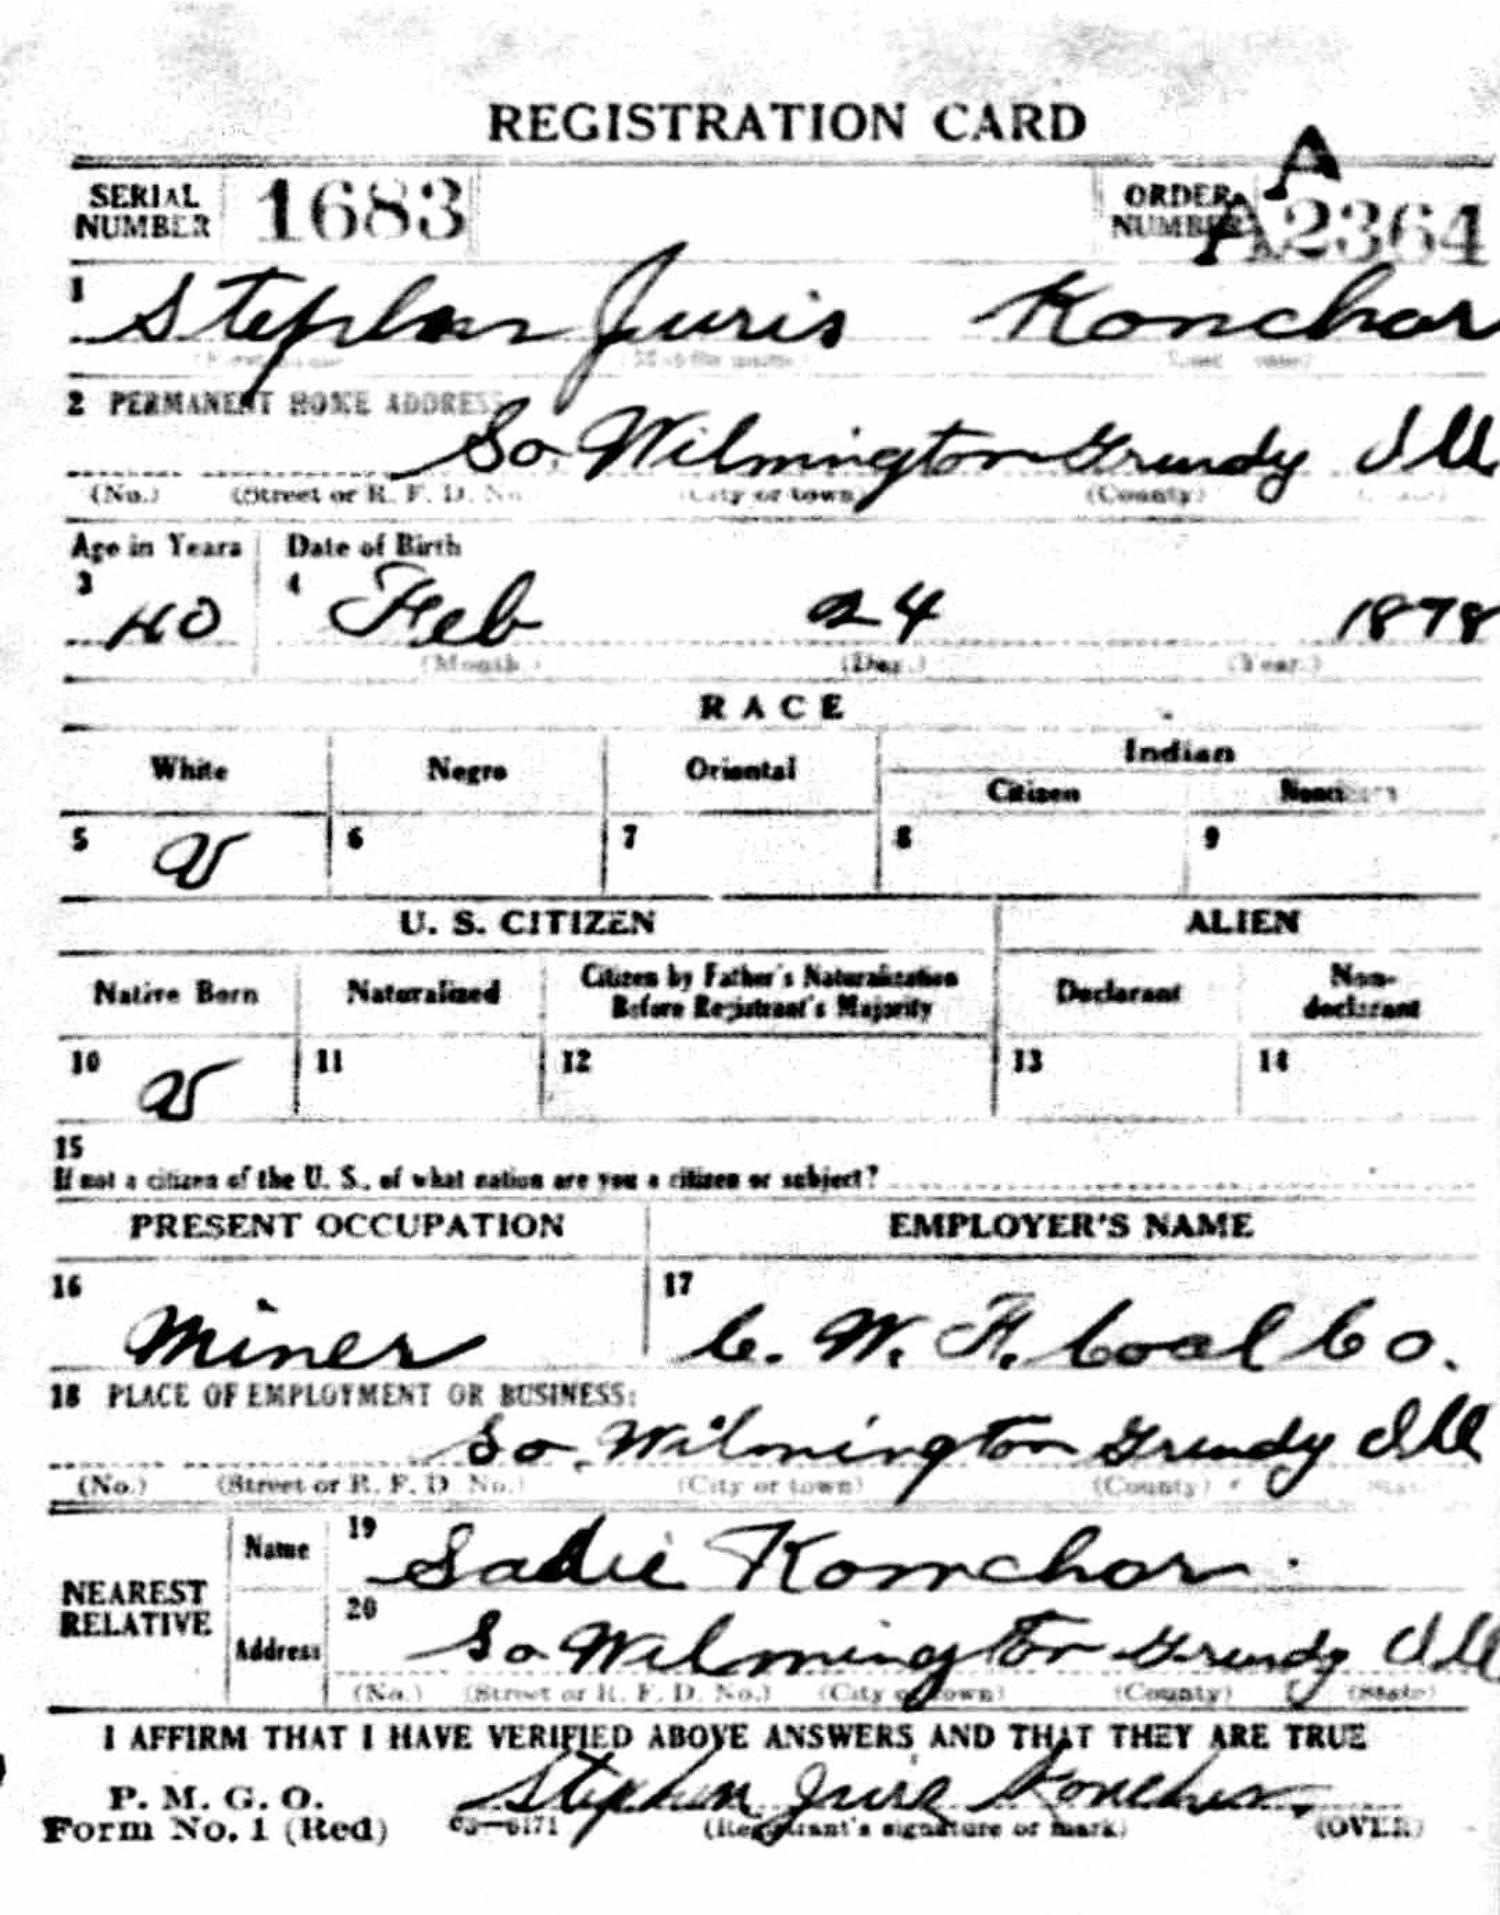 REGISTRATION CARD
SERIAL NUMBER 1683 ORDER NUMBER A A2364
1 Stephen Juris Konchar
(First name) (Middle name) (Last name)
2 PERMANENT HOME ADDRESS
So. Wilmington Grundy Ill
(No.) (Street or R. F. D. No.) (City or town) (County) (State)
Age in Years Date of Birth
3 40 4 Feb 24 1878
(Month.) (Day.) (Year.)
RACE
White Negro Oriental Indian
Citizen Noncitizen
5 V 6 7 8 9
U. S. CITIZEN ALIEN
Native Born Naturalized Citizen by Father's Naturalization Before Registrant's Majority Declarant Non-declarant
10 V 11 12 13 14
15
If not a citizen of the U. S., of what nation are you a citizen or subject?
PRESENT OCCUPATION EMPLOYER'S NAME
16 Miner 17 C. W. F. Coal Co.
18 PLACE OF EMPLOYMENT OR BUSINESS:
So. Wilmington Grundy Ill
(No.) (Street or R. F. D. No.) (City or town) (County) (State)
NEAREST RELATIVE
Name 19 Sadie Konchar
Address 20 So Wilmington Grundy Ill
(No.) (Street or R. F. D. No.) (City or town) (County) (State)
I AFFIRM THAT I HAVE VERIFIED ABOVE ANSWERS AND THAT THEY ARE TRUE
P. M. G. O.
Form No. 1 (Red) 03—6171 Stephen Juris Konchar
(Registrant's signature or mark) (OVER)